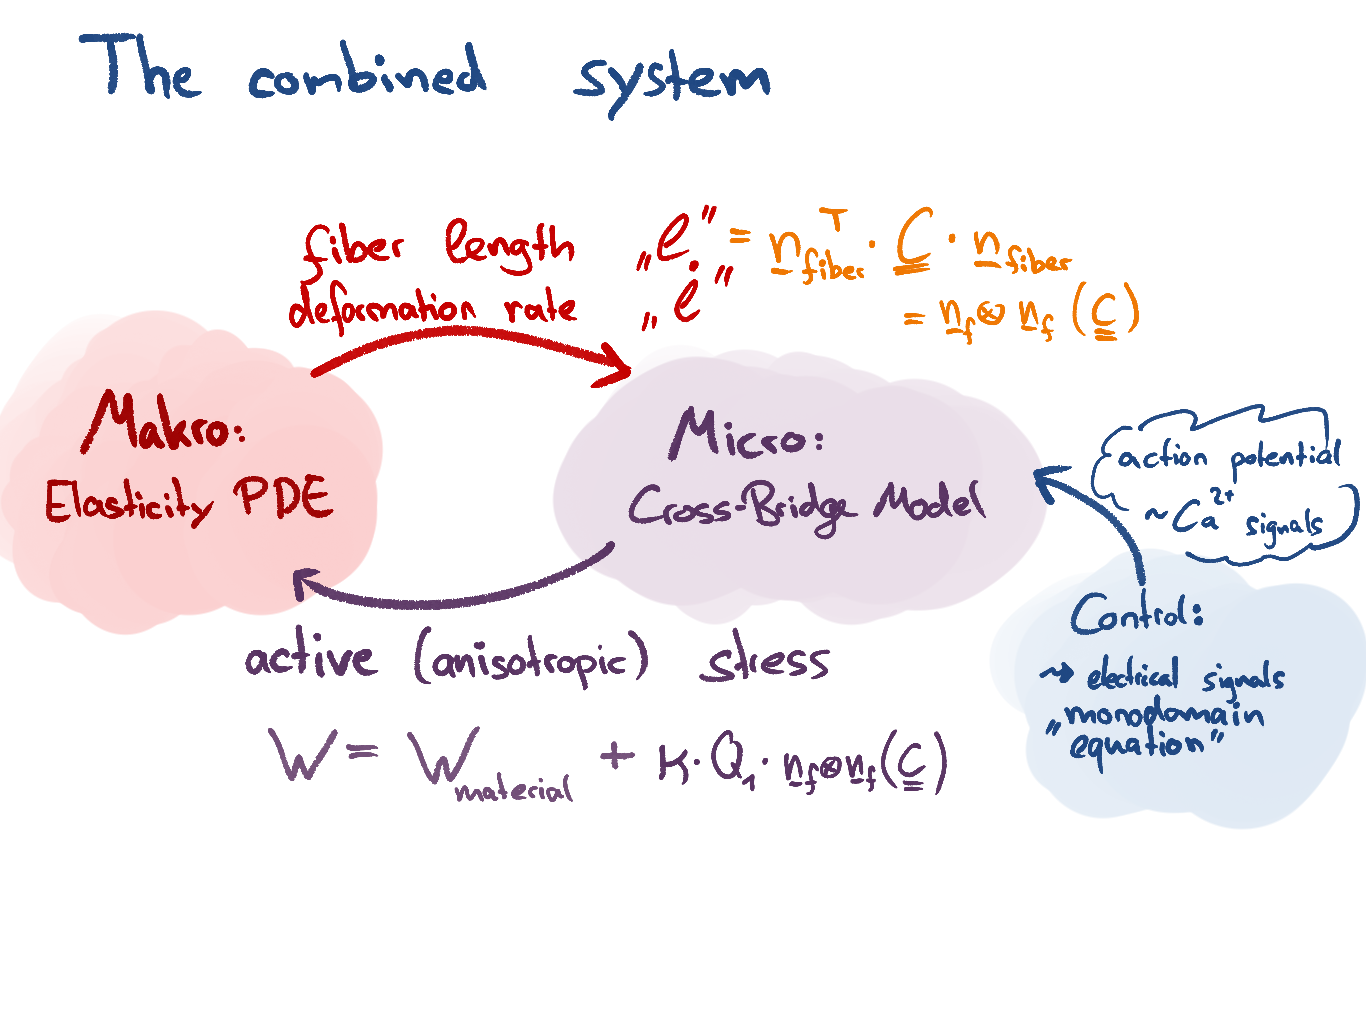 The combined system
fiber length „l" = n_fiber^T · C · n_fiber
deformation rate „l̇" = n_f ⊗ n_f (C)
Makro:
Elasticity PDE
Micro:
Cross-Bridge Model
action potential
~ Ca²⁺ signals
Control:
⇝ electrical signals
„monodomain
equation"
active (anisotropic) stress
W = W_material + K · Q₁ · n_f ⊗ n_f (C)